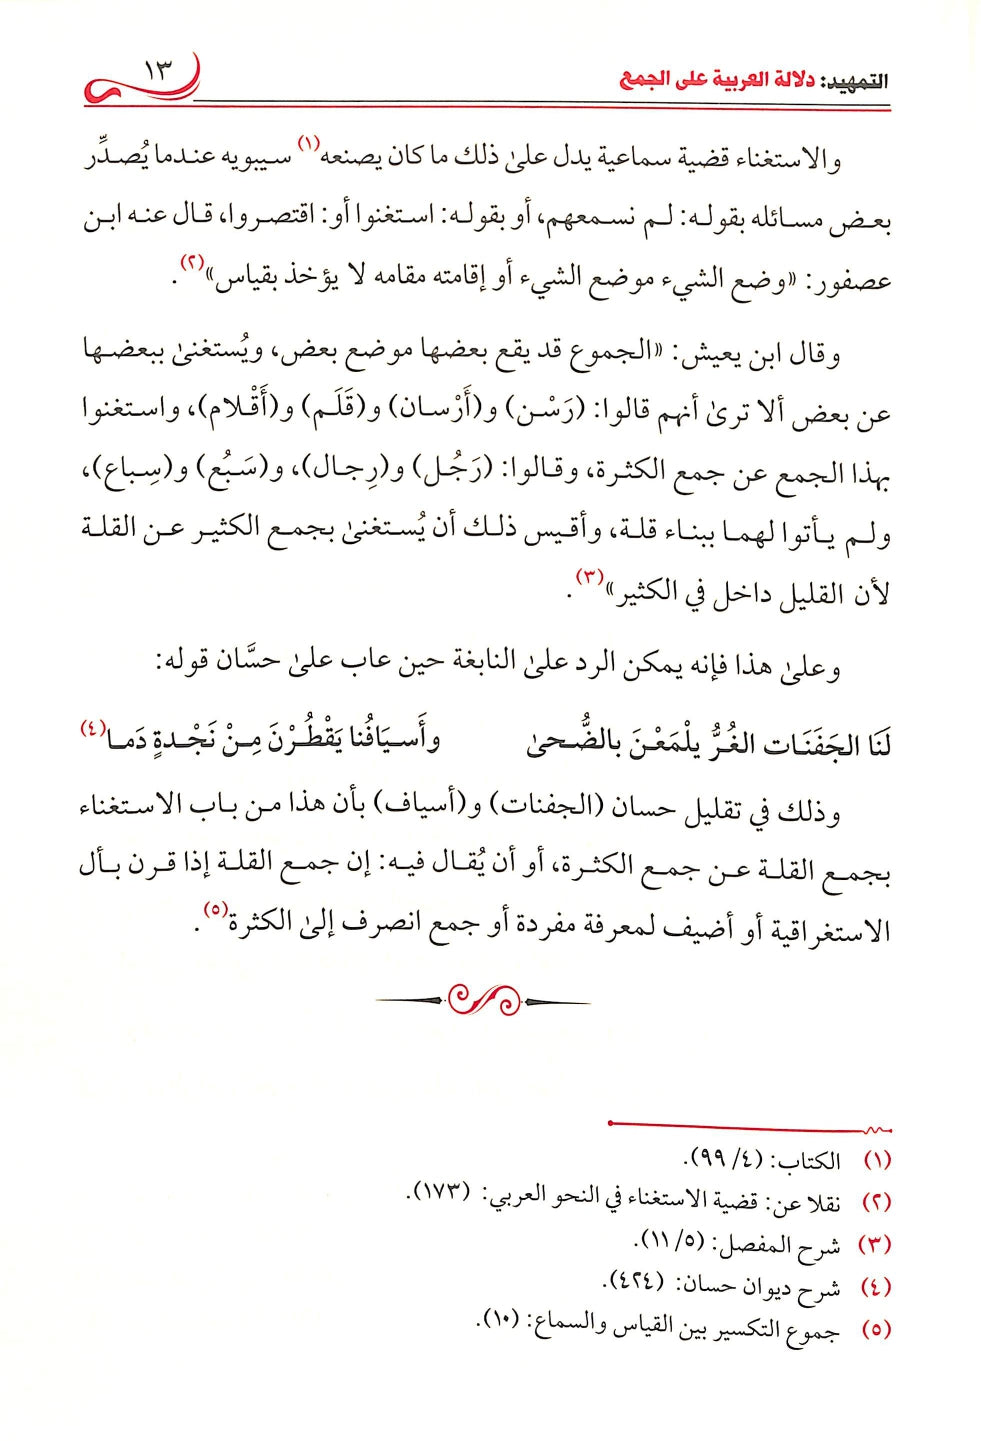 التمهيد: دلالة العربية على الجمع
١٣
والاستغناء قضية سماعية يدل علىٰ ذلك ما كان يصنعه(١) سيبويه عندما يُصدِّر
بعض مسائله بقوله: لم نسمعهم، أو بقوله: استغنوا أو: اقتصروا، قال عنه ابن
عصفور: «وضع الشيء موضع الشيء أو إقامته مقامه لا يؤخذ بقياس»(٢).
وقال ابن يعيش: «الجموع قد يقع بعضها موضع بعض، ويُستغنىٰ ببعضها
عن بعض ألا ترىٰ أنهم قالوا: (رَسْن) و(أَرْسان) و(قَلَم) و(أَقْلام)، واستغنوا
بهذا الجمع عن جمع الكثرة، وقالوا: (رَجُل) و(رِجال)، و(سَبُع) و(سِباع)،
ولم يأتوا لهما ببناء قلة، وأقيس ذلك أن يُستغنىٰ بجمع الكثير عن القلة
لأن القليل داخل في الكثير»(٣).
وعلىٰ هذا فإنه يمكن الرد علىٰ النابغة حين عاب علىٰ حسَّان قوله:
لَنَا الجَفَنَات الغُرُّ يلْمَعْنَ بالضُّحىٰ وأَسيَافُنا يَقْطُرْنَ مِنْ نَجْدةٍ دَما(٤)
وذلك في تقليل حسان (الجفنات) و(أسياف) بأن هذا من باب الاستغناء
بجمع القلة عن جمع الكثرة، أو أن يُقال فيه: إن جمع القلة إذا قرن بأل
الاستغراقية أو أضيف لمعرفة مفردة أو جمع انصرف إلىٰ الكثرة(٥).
(١) الكتاب: (٤/ ٩٩).
(٢) نقلا عن: قضية الاستغناء في النحو العربي: (١٧٣).
(٣) شرح المفصل: (٥/ ١١).
(٤) شرح ديوان حسان: (٤٢٤).
(٥) جموع التكسير بين القياس والسماع: (١٠).